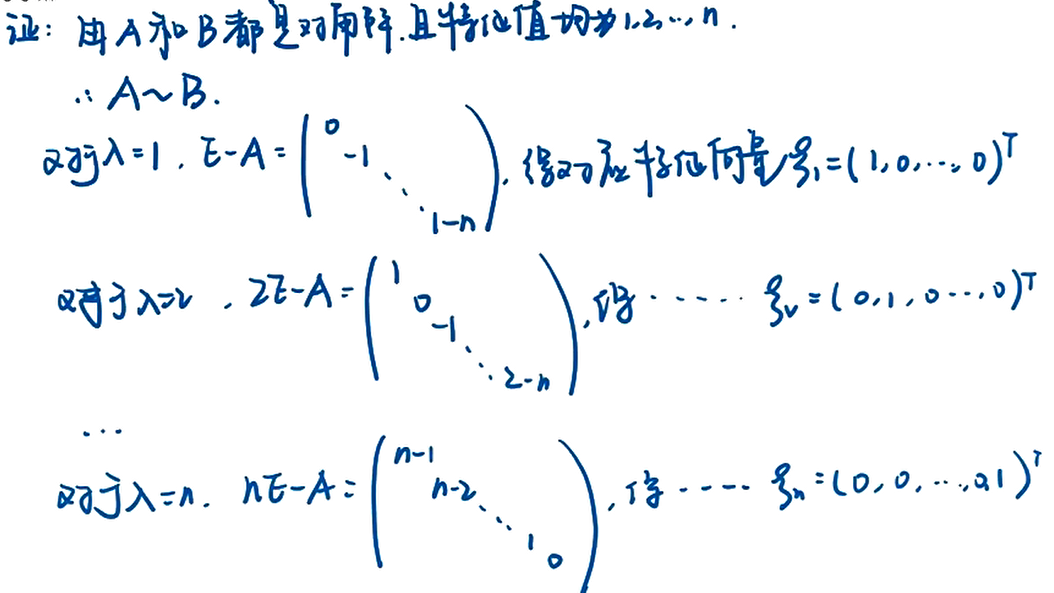 证: 由A和B都是对角阵.且特征值均为1,2,…,n.
∴ A~B.
对于λ=1, E-A= ( 0 -1 ⋱ 1-n ), 得对应特征向量ξ₁=(1,0,…,0)ᵀ
对于λ=2, 2E-A= ( 1 0 -1 ⋱ 2-n ), 得 …… ξ₂=(0,1,0…,0)ᵀ
…
对于λ=n. nE-A= ( n-1 n-2 ⋱ 1 0 ), 得 …… ξₙ=(0,0,…,0,1)ᵀ